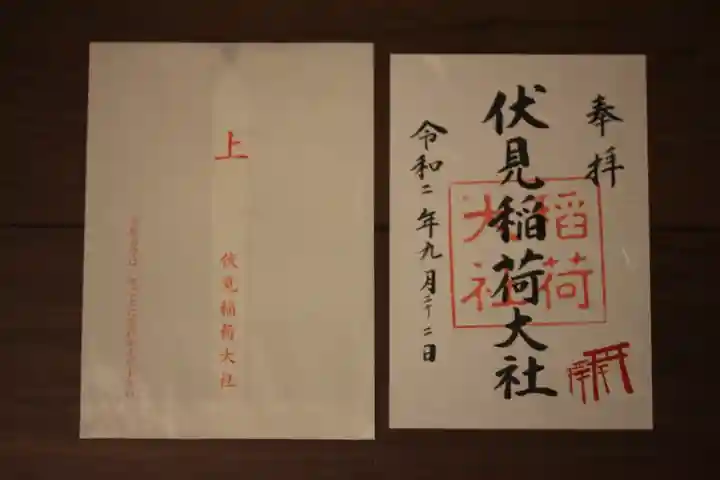 奉拝
伏見稲荷大社
稲荷
大社
令和二年九月二十二日
上
伏見稲荷大社